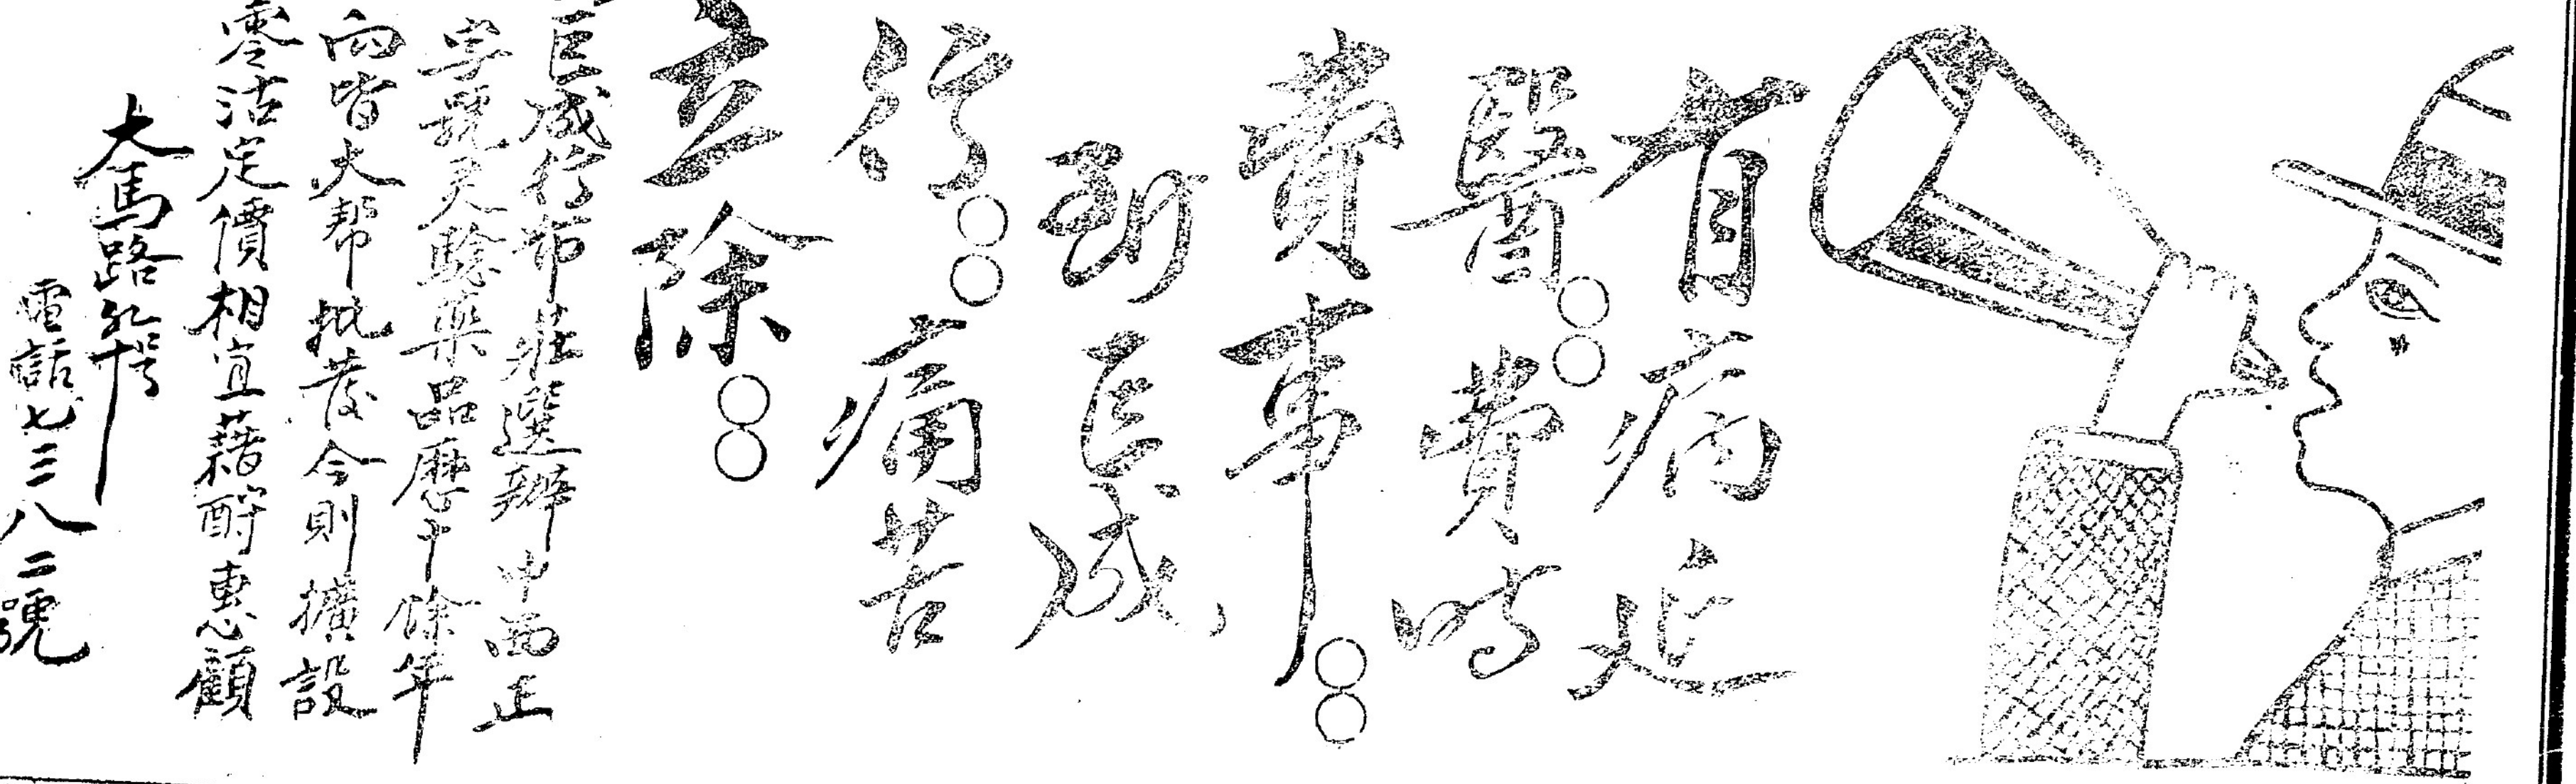 有病延
醫○○費時
費事○○
到巨成
行○○痛苦
立除○○
巨成行布莊選辦中西正
字號灵驗藥品歷十餘年
向皆大帮批發今則擴設
零沽定價相宜藉酧惠顧
大馬路
電話七三八二號